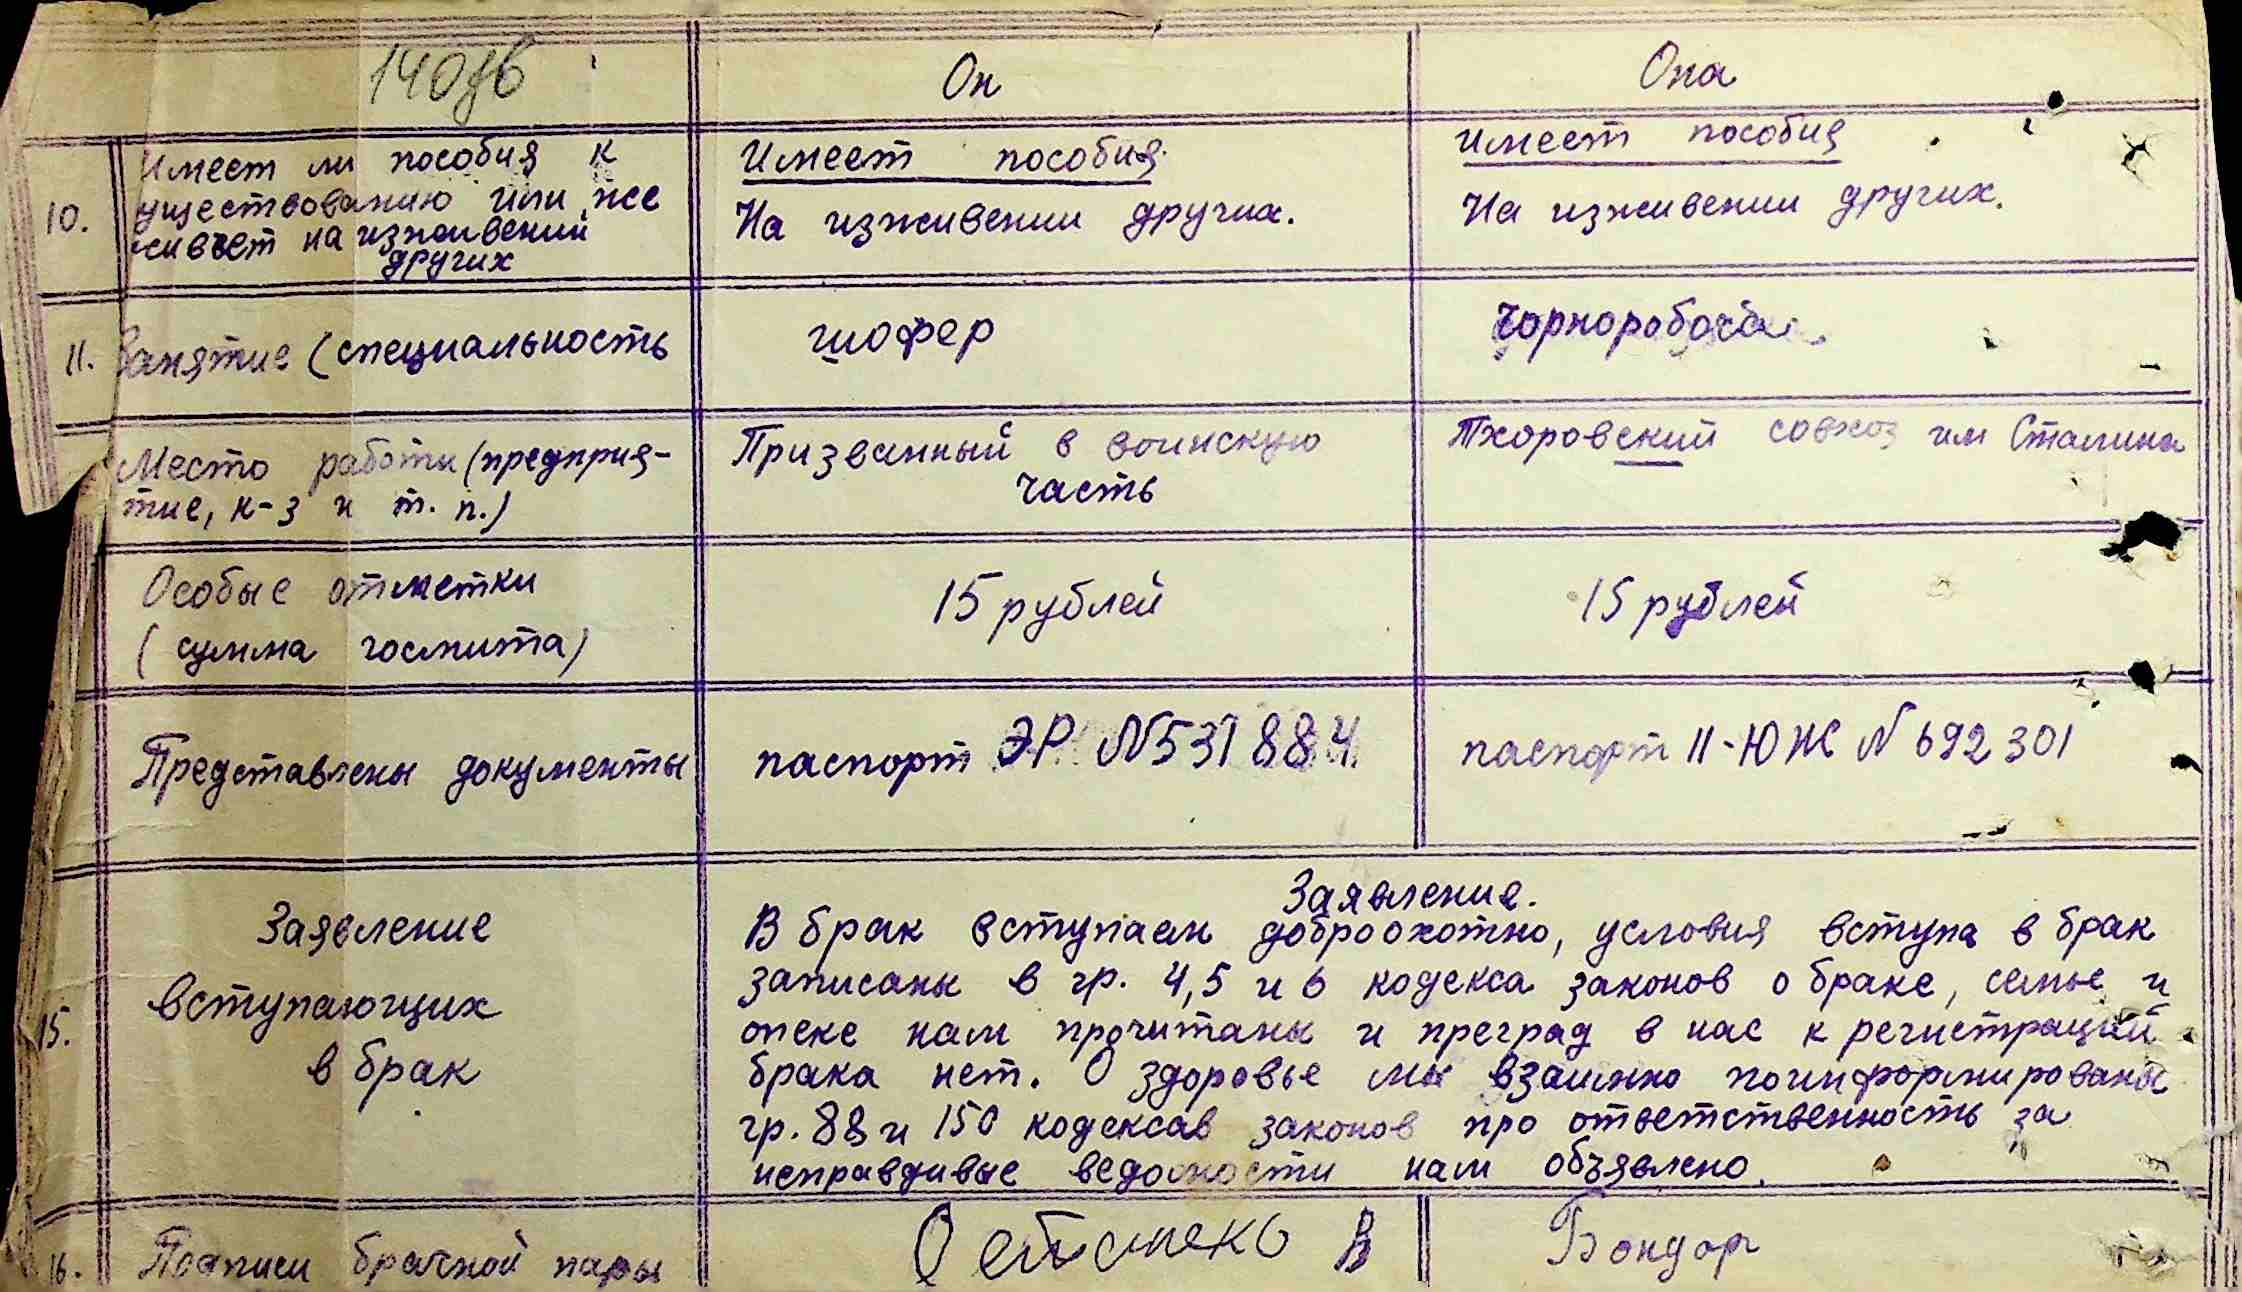 140зв
Он
Она
10.
Имеет ли пособия к
уществованию или же
живет на изживении
других
Имеет пособия.
На изживении других.
Имеет пособия
На изживении других.
11.
Занятие (специальность
шофер
чорноробочая
Место работы (предприя-
тие, к-з и т. п.)
Призванный в воинскую
часть
Тхоровский совхоз им Сталина
Особые отметки
(сумма госмита)
15 рублей
15 рублей
Представлены документы
паспорт ЭР N 531 884
паспорт II-ЮЖ N 692 301
15.
Заявление
вступающих
в брак
Заявление.
В брак вступаем доброохотно, условия вступа в брак
записаны в гр. 4,5 и 6 кодекса законов о браке, семье и
опеке нам прочитаны и преград в нас к регистраций
брака нет. О здоровье мы взаимно поинформированы
гр. 88 и 150 кодексав законов про ответственность за
неправдивые ведомости нам объявлено.
16.
Подписи брачной пары
В
Бондар